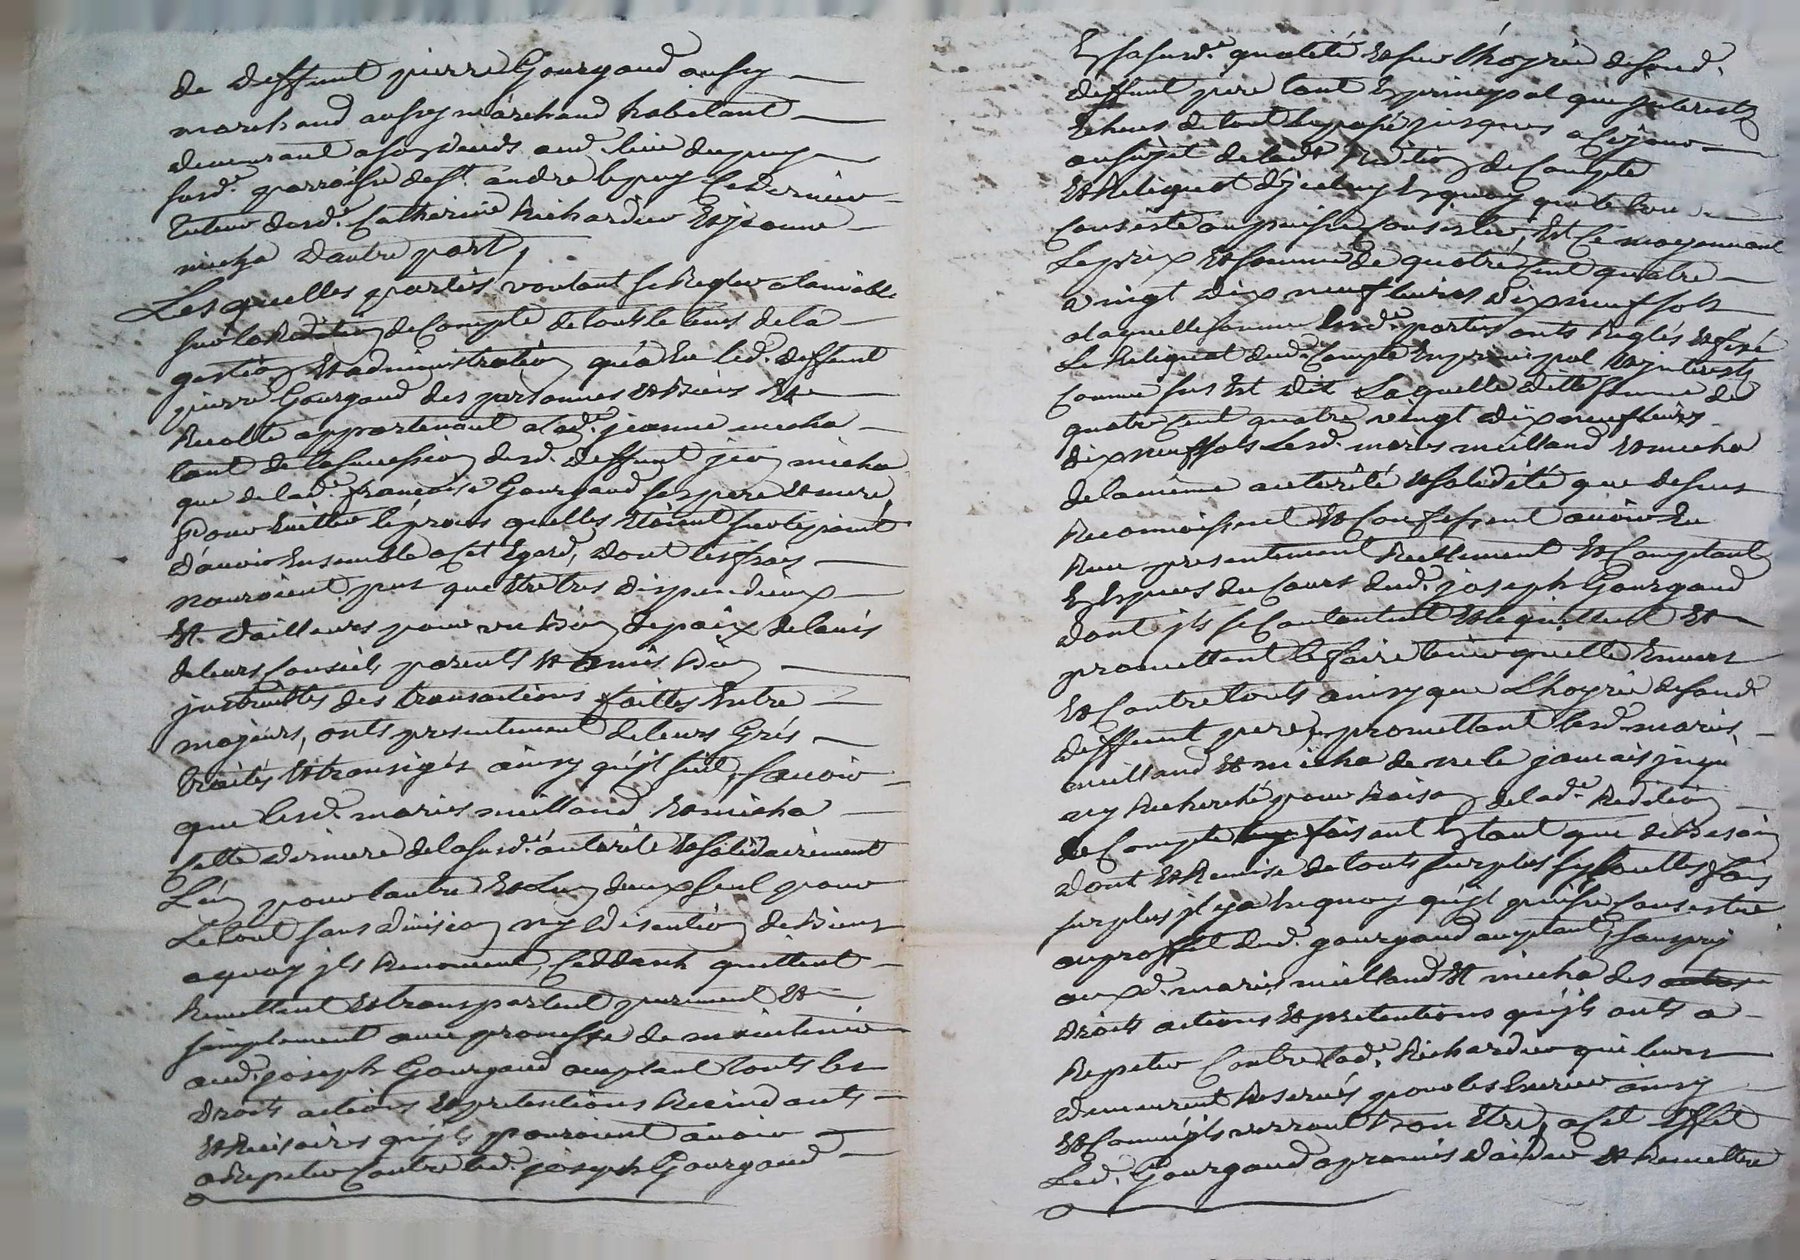 de deffunt pierre Gourgaud aussy
marchand aussy marchand habitant
demeurant a son dands aud. lieu du puy
susd. parroisse de St. andre le puy ce dernier
tuteur dasd.e Catherine Richardier et jeanne
micha dautre part,
Lesquelles parties voulant se Regler alamiable
sur la Reddition de Compte de tout le tems de la
gestion et administration qu'a Eu led. deffunt
pierre Gourgaud des personnes et Biens et
Recolte appartenant a lad.e jeanne micha
tant de la succession dud. deffunt jean micha
que de lad.e françoise Gourgaud ses pere et mere,
Pour Eviter le procès quelles Etoient sur le point
d'avoir Ensemble a Cet Egard, dont les frais
n'auroient pus que Etre tres dispendieux
et d'ailleurs pour un Bien de paix de lavis
de leurs Conseils parents et amis Bien
instruittes des transactions faittes Entre
majeurs, onts presentement de leurs Grés
traités et transigés ainsy qu'il suit, savoir
que lesd. mariés muilland et micha
cette derniere de la susd.e autorité et solidairement
L'un pour lautre et Lun deux seul pour
Le tout sans division ny discution de Biens
a quoy ils Renoncent, Ceddent quittent
Remettent et transportent purement et
simplement avec promesse de maintenir
aud. joseph Gourgaud aceptant touts les
droits actions et pretentions Rescindants
et Rescisoires qu'ils pouroient avoir
a Repeter Contre led. joseph Gourgaud
En sa susd.e qualité et sur l'hoyrie de soud.
deffunt pere tant En principal que interests
Echeus de tout le passé jusques a Ce jour
au sujet de lad.e Reddition de Compte
et Reliquat d'jceluy En quoy que le tout
Consiste ou puisse Consister, et Ce moyennant
Le prix et somme de quatre Cent quatre
vingt dix neuf livres dix neuf sols
a laquelle somme lesd.es parties onts Reglés et fixé
Le Reliquat dud. Compte En principal et interests
Comme sus Est dit Laquelle ditte somme de
quatre Cent quatre vingt dix neuf livres
dix neuf sols Lesd. mariés muilland et micha
de la même autorité et solidité que dessus
Reconnoissent et Confessent avoir Eu
Receu presentement Reellement et Comptant
En Especes du Cours dud. joseph Gourgaud
dont jls se Contentent et le quittent et
promettent le faire tenir quitte Envers
et Contre touts ainsy que L'hoyrie de soud.
deffunt pere, promettant lesd. mariés
muilland et micha de ne le jamais
ny Recherché pour Raison de lad.e Reddition
de Compte faisant En tant que de Besoin
dont et Remise de touts surplus sy
surplus jl y a En quoy qu'jl puisse Consister
au proffit dud. gourgaud aceptant,
auxd. mariés muilland et micha des
droits actions et pretentions qu'jls onts a
Repeter Contre lad.e Richardier qui leurs
demeurent Reservés pour les Exercer ainsy
et Comme jls verront Bon Etre, a Cet Effet
Led. Gourgaud a promis d'aider et Remettre